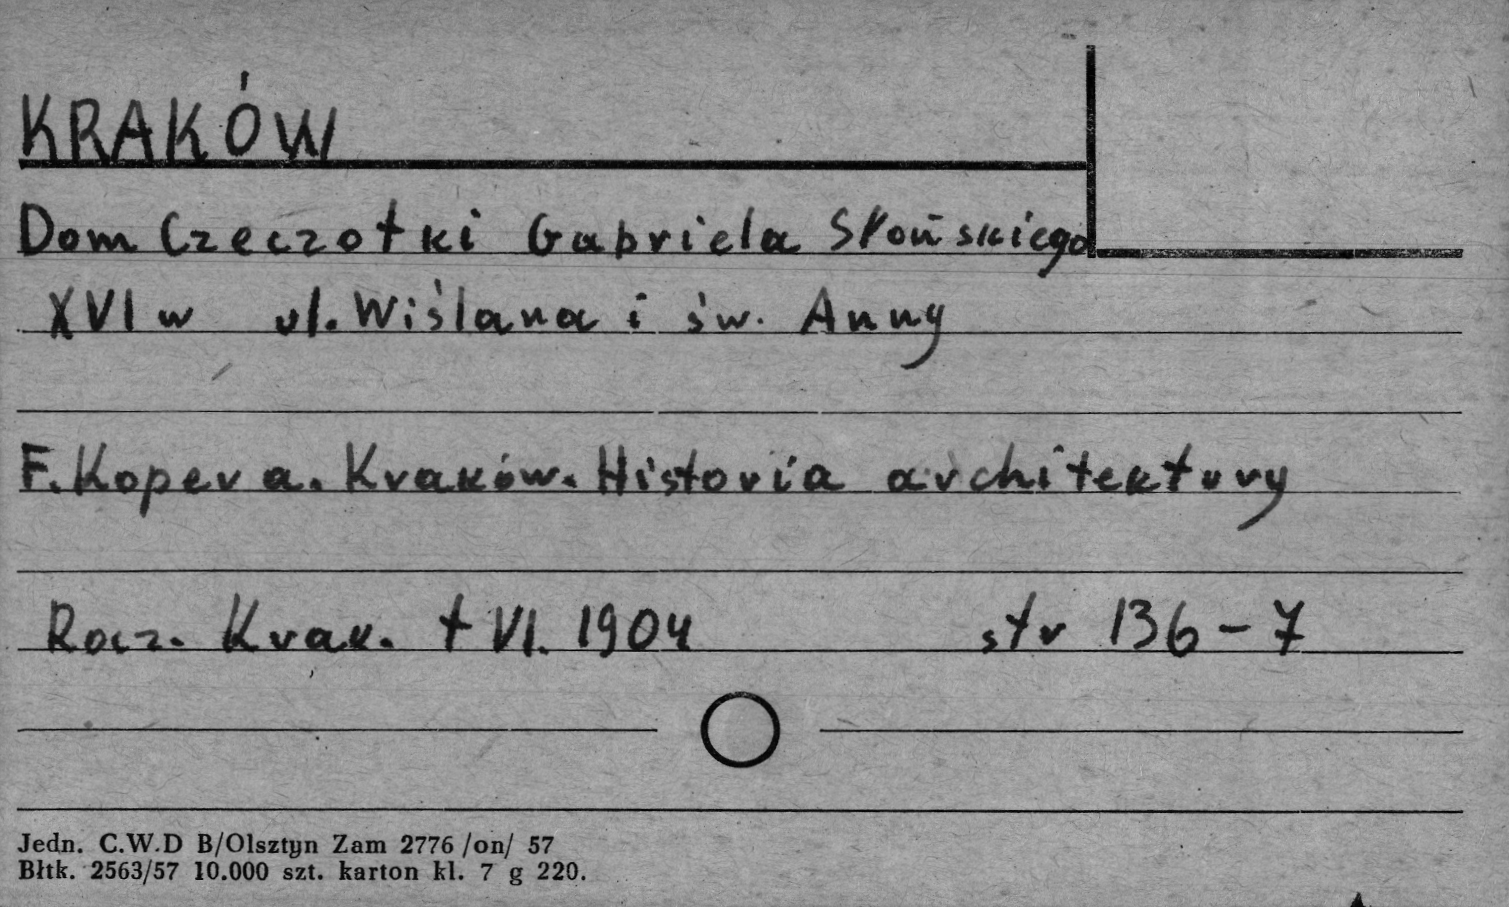 KRAKÓW
Dom Czeczotki Gabriela Słońskiego
XVI w ul. Wiślana i św. Anny
F. Kopera. Kraków. Historia architektury
Rocz. Krak. t VI. 1904 str 136-7
Jedn. C.W.D B/Olsztyn Zam 2776 /on/ 57
Błtk. 2563/57 10.000 szt. karton kl. 7 g 220.